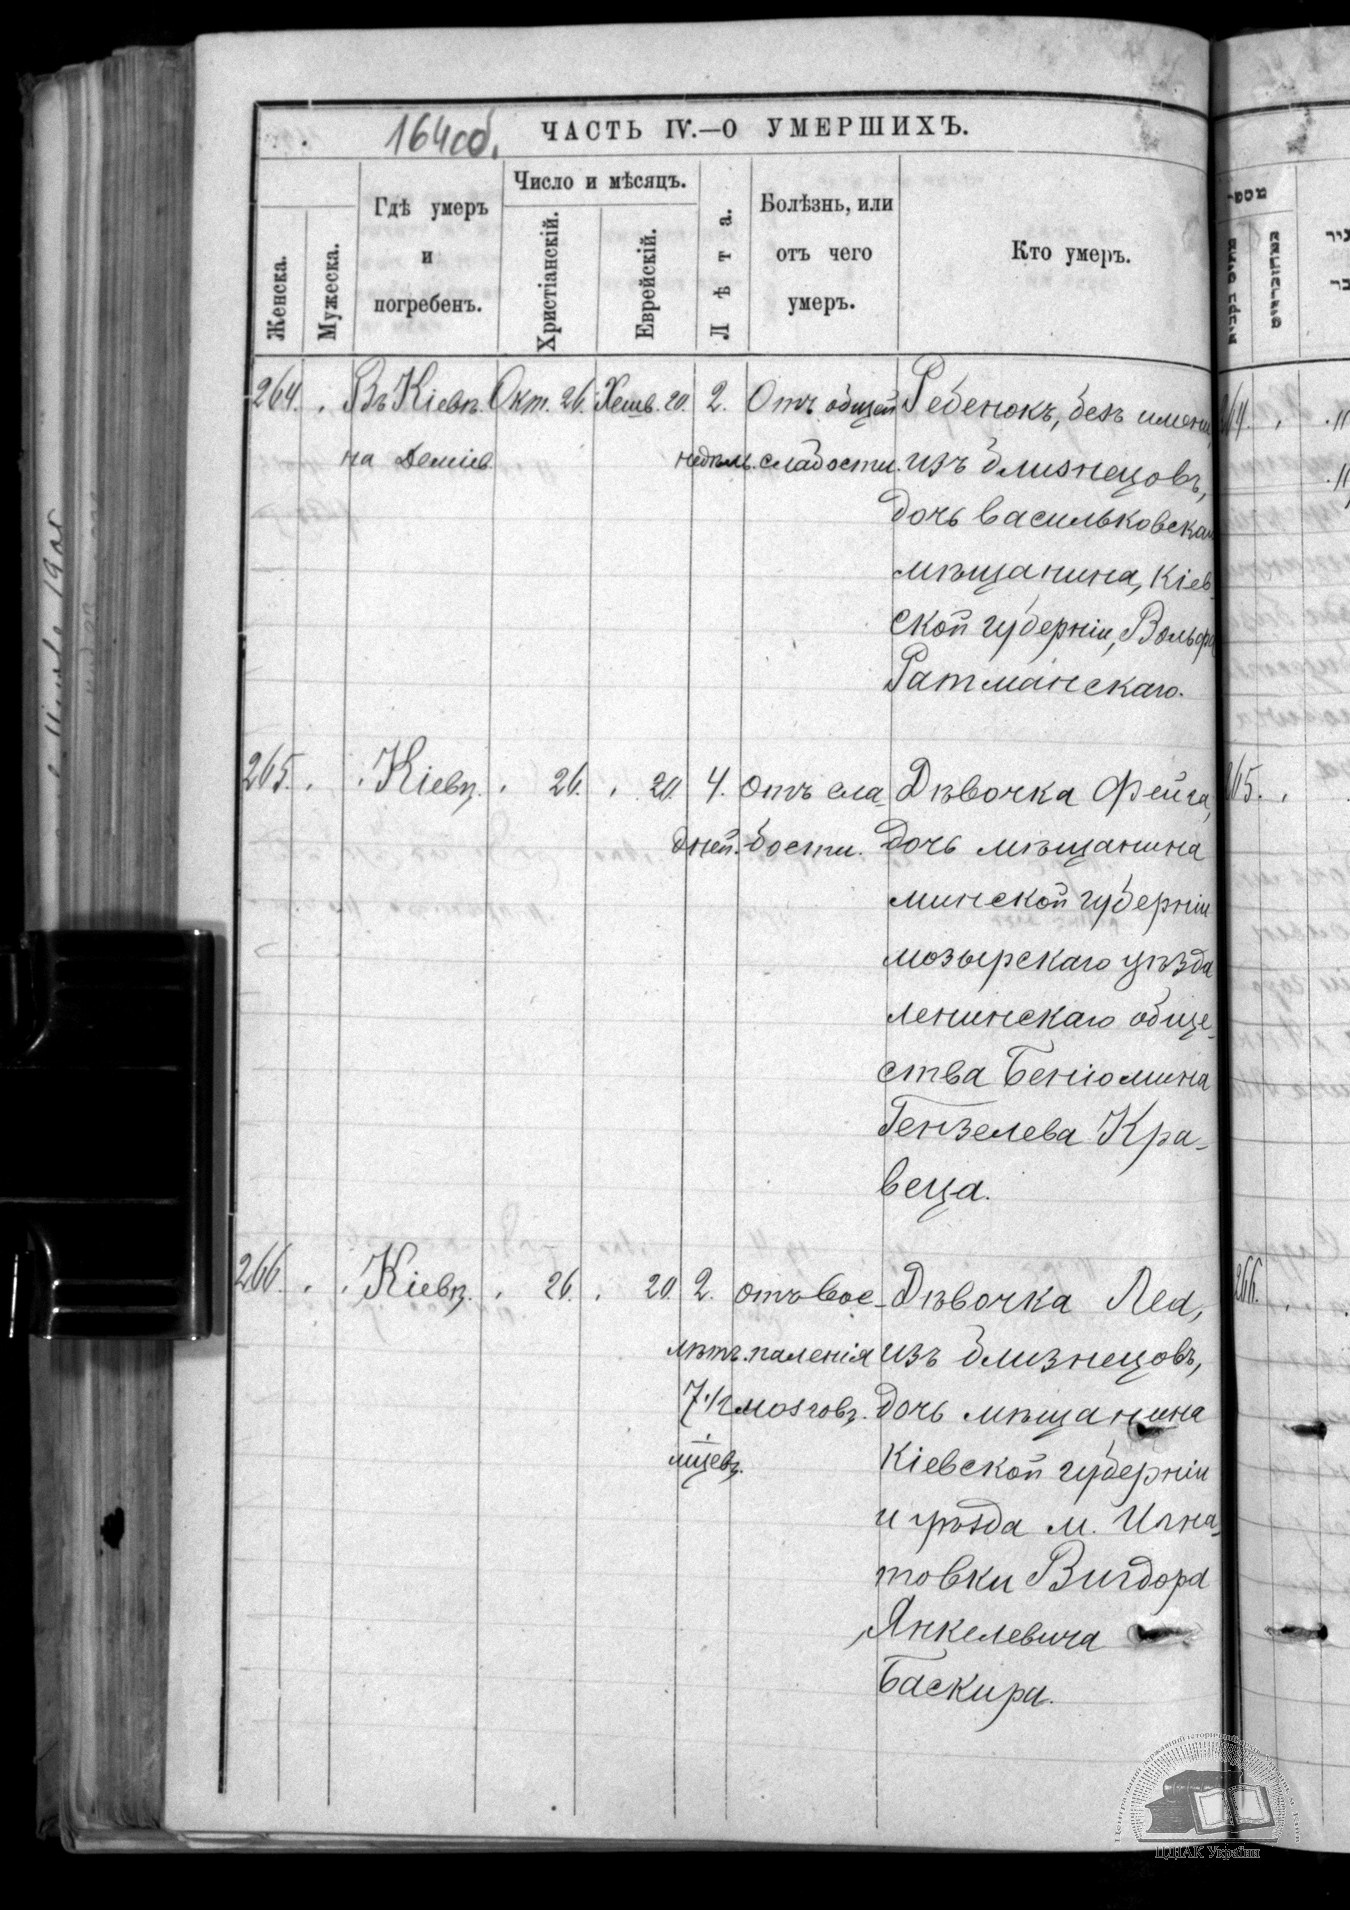 164об.
ЧАСТЬ IV.—О УМЕРШИХЪ.
Женска.
Мужеска.
Гдѣ умеръ
и
погребенъ.
Число и мѣсяцъ.
Христіанскій.
Еврейскій.
Лѣта.
Болѣзнь, или
отъ чего
умеръ.
Кто умеръ.
264. . Въ Кіевѣ. Окт. 26. Хешв. 20. 2. Отъ общей Ребенокъ, безъ имени,
на Деміев. недѣль. слабости. изъ близнецовъ,
дочь васильковскаго
мѣщанина, Кіев-
ской губерніи, Вольфа
Ратманскаго.
265. . . Кіевѣ. . 26. . 20. 4. Отъ сла- Дѣвочка Фейга,
дней. бости. дочь мѣщанина
минской губерніи
мозырскаго уѣзда
ленинскаго обще-
ства Беніомина
Гензелева Кра-
веца.
266. . . Кіевѣ. . 26. . 20. 2. отъ вос- Дѣвочка Лея,
лѣтъ. паленія изъ близнецовъ,
7 1/2 мозговъ. дочь мѣщанина
мцевъ. Кіевской губерніи
и уѣзда м. Игна-
товки Вигдора
Янкелевича
Баскира.
264.
265.
266.
ЦДІАК України